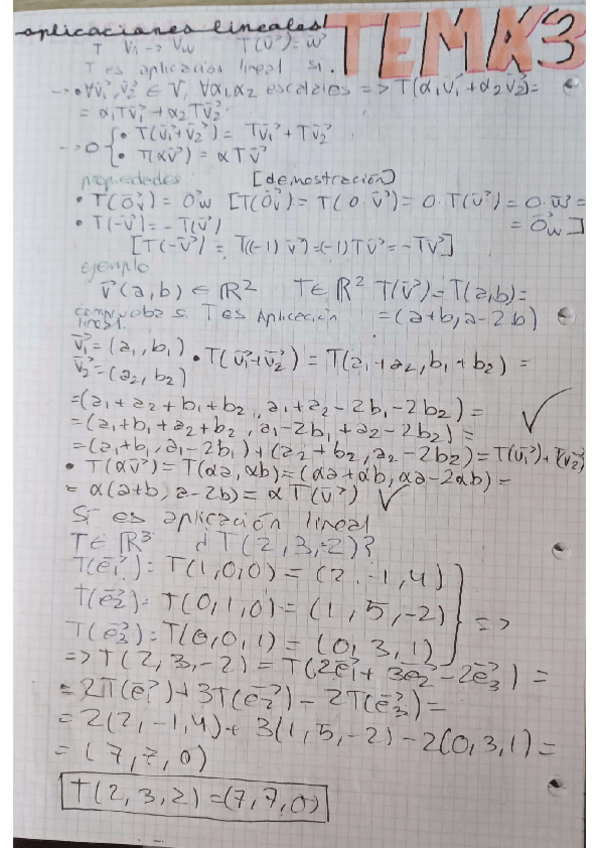 aplicaciones lineales! TEMA 3
T V₁ -> Vw T(v⃗) = w⃗
T es aplicación lineal si.
-> • ∀v⃗₁, v⃗₂ ∈ V, ∀α₁,α₂ escalales => T(α₁v⃗₁ + α₂v⃗₂) =
= α₁Tv⃗₁ + α₂Tv⃗₂.
-> O { • T(v⃗₁+v⃗₂) = Tv⃗₁ + Tv⃗₂
• T(αv⃗) = αTv⃗
propiedades: [demostración]
• T(0⃗v) = 0⃗w [T(0⃗v) = T(0·v⃗) = 0·T(v⃗) = 0·w⃗ =
= 0⃗w]
• T(-v⃗) = -T(v⃗)
[T(-v⃗) = T(-1)v⃗ = (-1)Tv⃗ = -Tv⃗]
ejemplo
v⃗(a,b) ∈ ℝ² T∈ℝ² T(v⃗) = T(a,b) =
comprueba si T es Aplicación = (a+b, a-2b)
lineal.
v⃗₁ = (a₁, b₁)
v⃗₂ = (a₂, b₂) • T(v⃗₁+v⃗₂) = T(a₁+a₂, b₁+b₂) =
= (a₁+a₂+b₁+b₂, a₁+a₂-2b₁-2b₂) =
= (a₁+b₁+a₂+b₂, a₁-2b₁+a₂-2b₂) = ✓
= (a₁+b₁, a₁-2b₁) + (a₂+b₂, a₂-2b₂) = T(v⃗₁) + T(v⃗₂)
• T(αv⃗) = T(αa, αb) = (αa+αb, αa-2αb) =
= α(a+b, a-2b) = αT(v⃗) ✓
Sí es aplicación lineal
T∈ℝ³ ¿T(2,3,-2)?
T(e⃗₁): T(1,0,0) = (2,-1,4)
T(e⃗₂): T(0,1,0) = (1,5,-2) } =>
T(e⃗₃): T(0,0,1) = (0,3,1)
=> T(2,3,-2) = T(2e⃗₁ + 3e⃗₂ - 2e⃗₃) =
= 2T(e⃗₁) + 3T(e⃗₂) - 2T(e⃗₃) =
= 2(2,-1,4) + 3(1,5,-2) - 2(0,3,1) =
= (7,7,0)
T(2,3,2) = (7,7,0)